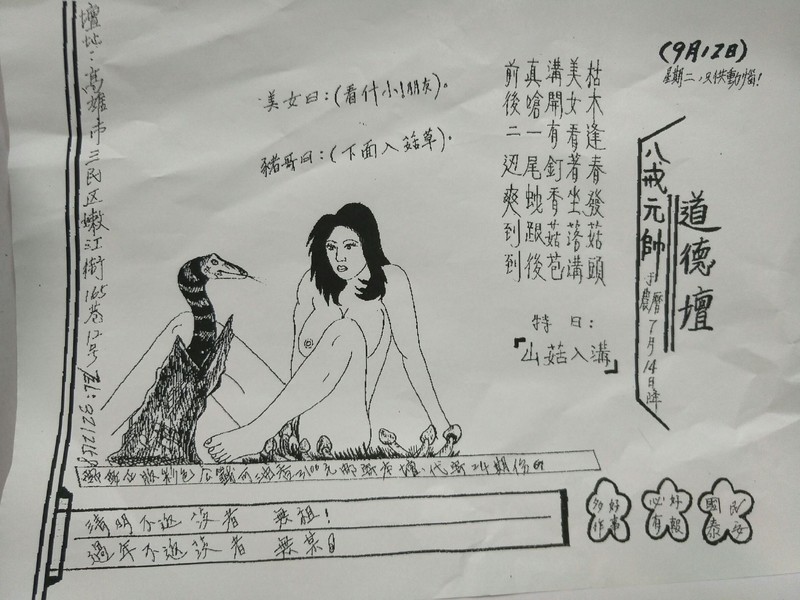 (9月12日)
星期二,只供動惱!
道德壇
八戒元帥
農曆7月14日降
枯木逢春發菇頭
美女看著坐落溝
溝開有釘香菇苞
真嗆一尾蛇跟後
前後二边爽到到
特曰:
「山菇入溝」
美女曰:(看什小!朋友)。
豬哥曰:(下面入菇草)。
壇址:高雄市三民区嫩江街165巷12号
清明不返 者 無祖!
過年不返 者 無某
多作好事
必有好報
國泰民安